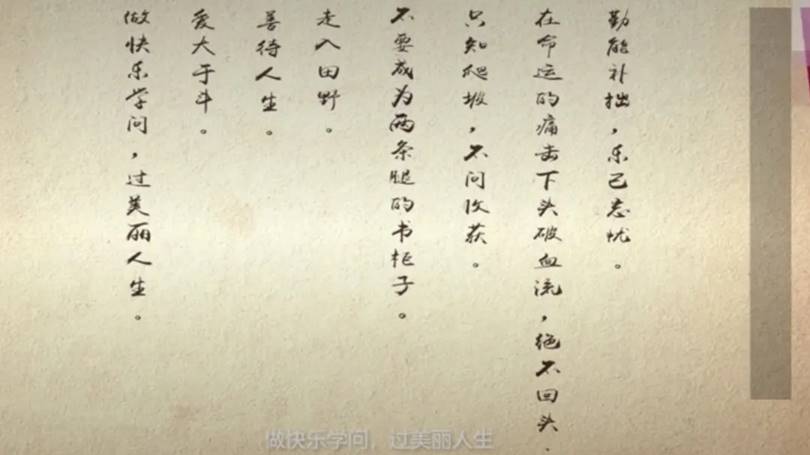 勤能补拙，乐己忘忧。
在命运的痛击下头破血流，绝不回头.
只知爬坡，不问收获。
不要成为两条腿的书柜子。
走入田野。
善待人生。
爱大于斗。
做快乐学问，过美丽人生。
做快乐学问，过美丽人生